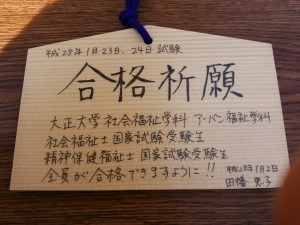 平成28年1月23日、24日試験
合格祈願
大正大学 社会福祉学科 アーバン福祉学科
社会福祉士 国家試験受験生
精神保健福祉士 国家試験受験生
全員が合格できますように!!
平成28年1月2日
田幡 恵子